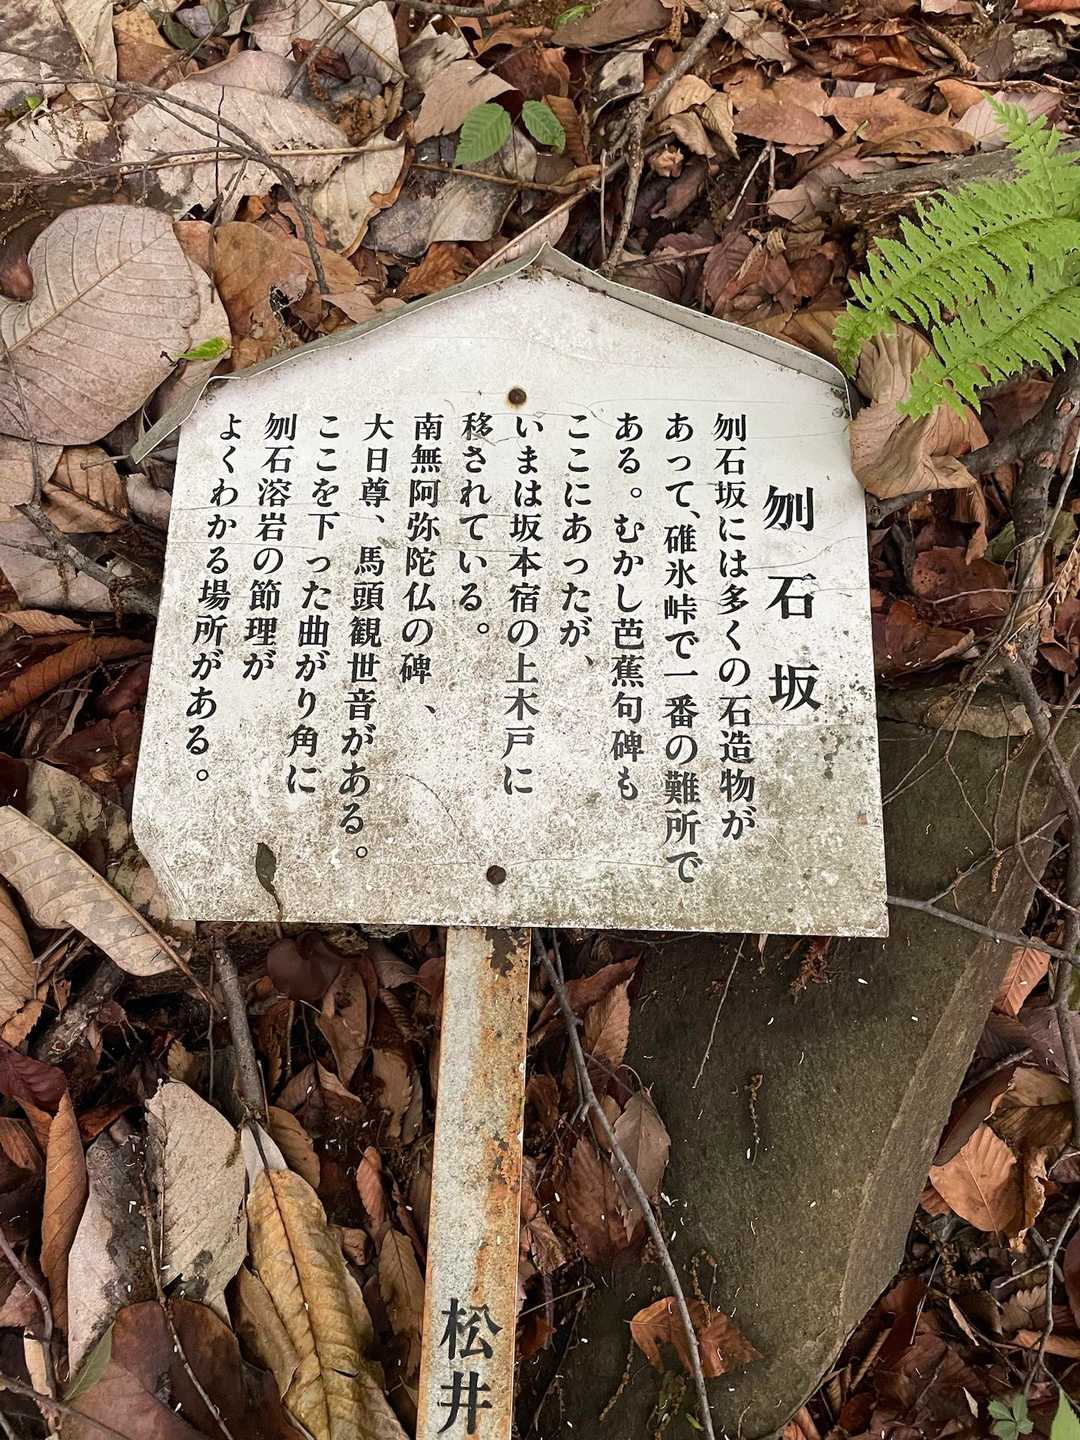 刎石坂
刎石坂には多くの石造物が
あって、碓氷峠で一番の難所で
ある。むかし芭蕉句碑も
ここにあったが、
いまは坂本宿の上木戸に
移されている。
南無阿弥陀仏の碑、
大日尊、馬頭観世音がある。
ここを下った曲がり角に
刎石溶岩の節理が
よくわかる場所がある。
松井